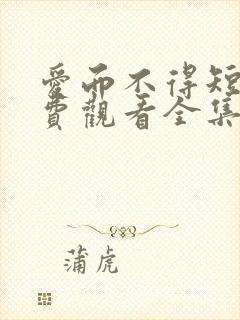 愛而不得短
費觀看全集
蒲虎